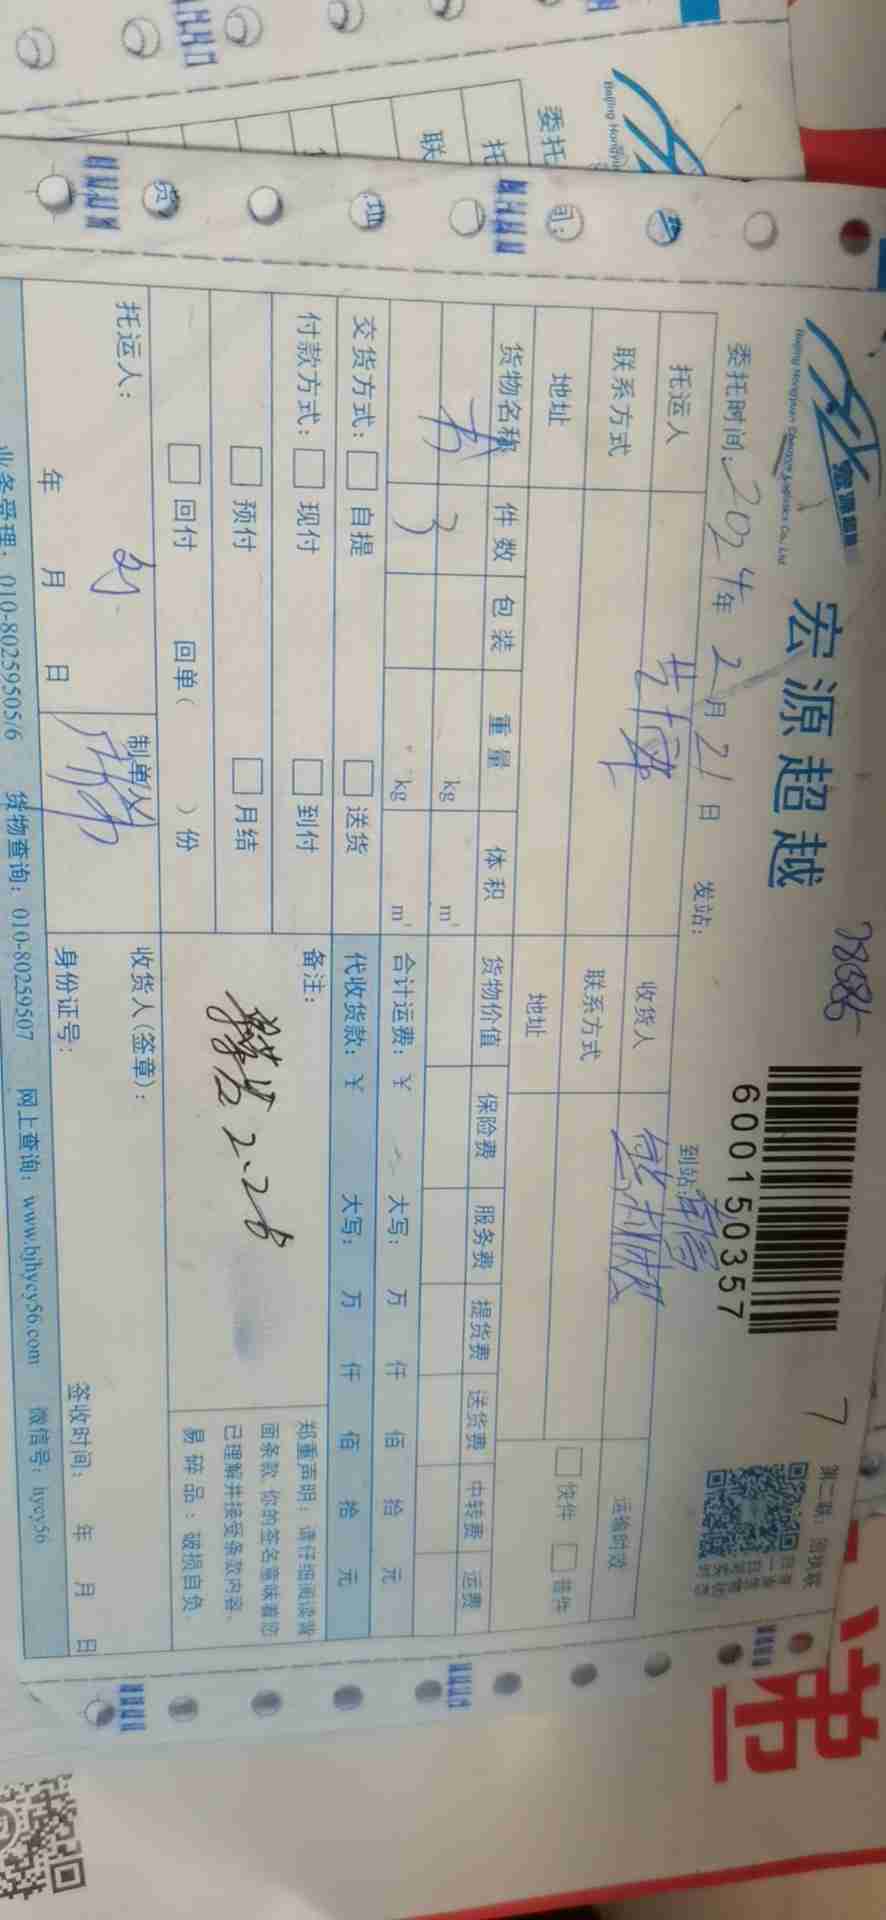 宏源超越
Beijing Hongyuan Chaoyue Logistics Co., Ltd
78586
600150357
7
第二联：回执联
委托时间：2024年2月21日
发站：
到站：南宫
托运人
收货人
运输时效
联系方式
联系方式
快件
普件
地址
地址
货物名称
件数
包装
重量
体积
货物价值
保险费
服务费
提货费
送货费
中转费
运费
书
3
kg
m³
kg
m³
合计运费：￥
大写：
万
仟
佰
拾
元
交货方式：
自提
送货
代收货款：￥
大写：
万
仟
佰
拾
元
付款方式：
现付
到付
备注：
预付
月结
回付
回单（
）份
2.26
郑重声明：请仔细阅读背
面条款 你的签名意味着您
已理解并接受条款内容。
易碎品：破损自负
托运人：
刘
制单人
收货人(签章)：
年
月
日
身份证号：
签收时间：
年
月
日
业务受理：010-80259505/6
货物查询：010-80259507
网上查询：www.bjhycy56.com
微信号：hycy56